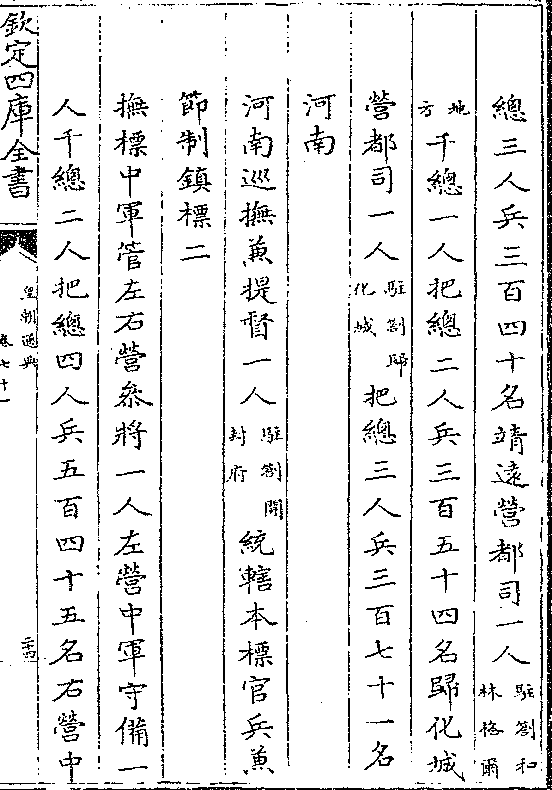 總三人兵三百四十名靖遠營都司一人駐劄和林格爾
地方千總一人把總二人兵三百五十四名歸化城
營都司一人駐劄歸化城把總三人兵三百七十一名
河南
河南巡撫兼提督一人駐劄開封府統轄本標官兵兼
節制鎮標二
撫標中軍管左右營叅將一人左營中軍守備一
人千總二人把總四人兵五百四十五名右營中
欽定四庫全書
皇朝通典
卷七十一
二十四